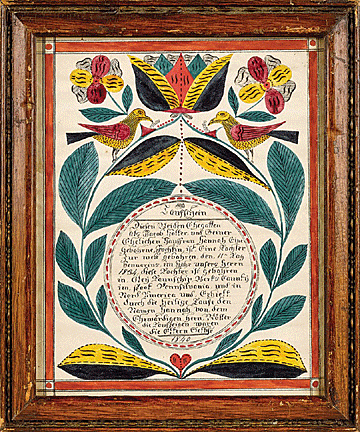 Taufschein
Diesen Beiden Ehegatten
Als Jacob und Seiner
Ehelichen Hausfrau Hannah Eine
gebohrne ist Eine Tochter
zur welt gebohren, den 11 Tag
im Jahr unsers Herrn
1834, diese Tochter ist gebohren
in Taunschip Berks Caunty
im staat Pennsylvania und in
Nord America und Erhielt
durch die heilige Taufe den
Namen Hannah von dem
Ehrwürdigen Herrn
die Taufzeugen waren
die Eltern Selbst
1840